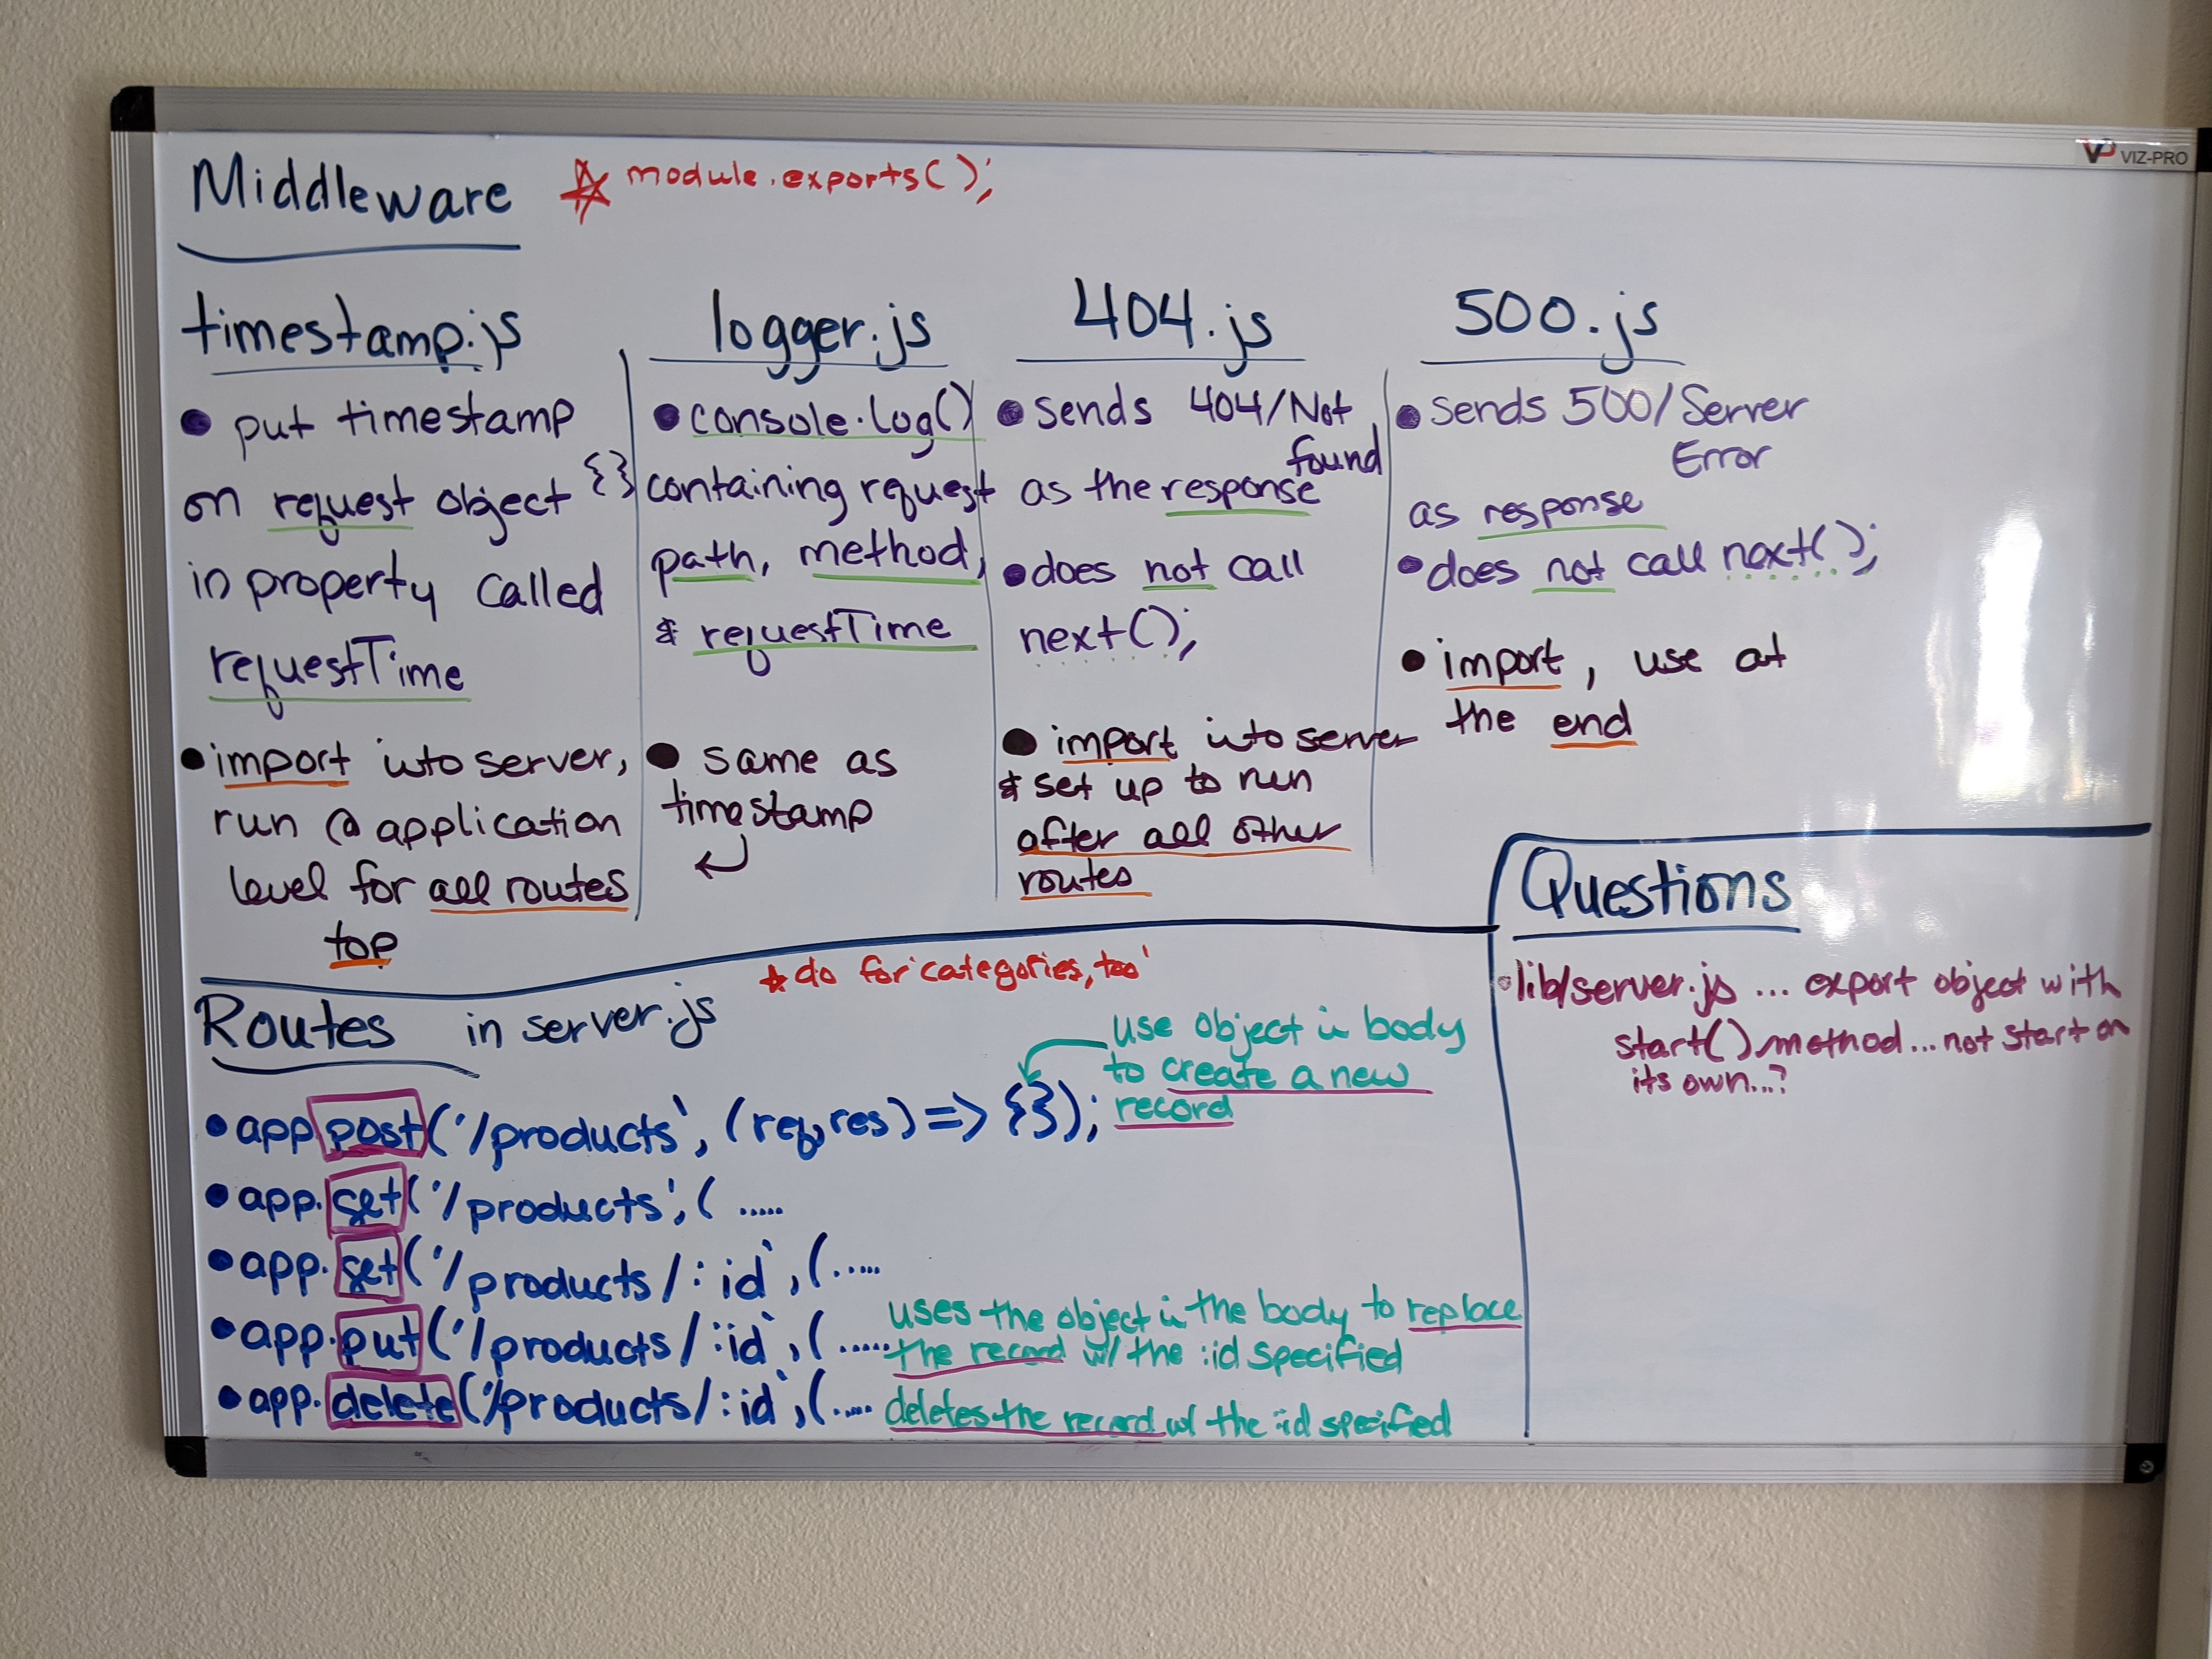 VP VIZ-PRO
Middleware
☆ module.exports();
timestamp.js
• put timestamp
on request object {}
in property called
requestTime
• import into server,
run @ application
level for all routes
top
logger.js
• console.log()
containing request
path, method,
& requestTime
• same as
timestamp
↵
404.js
• sends 404/Not
found
as the response
• does not call
next();
• import into server
& set up to run
after all other
routes
500.js
• sends 500/Server
Error
as response
• does not call next();
• import, use at
the end
Routes in server.js
★ do for 'categories, too'
• app.post('/products', (req,res) => {});
use object in body
to create a new
record
• app.get('/products', ( .....
• app.get('/products/:id', (.....
• app.put('/products/:id', ( .....
uses the object in the body to replace
the record w/ the :id specified
• app.delete('/products/:id', (....
deletes the record w/ the :id specified
Questions
• lib/server.js ... export object with
start() method... not start on
its own...?